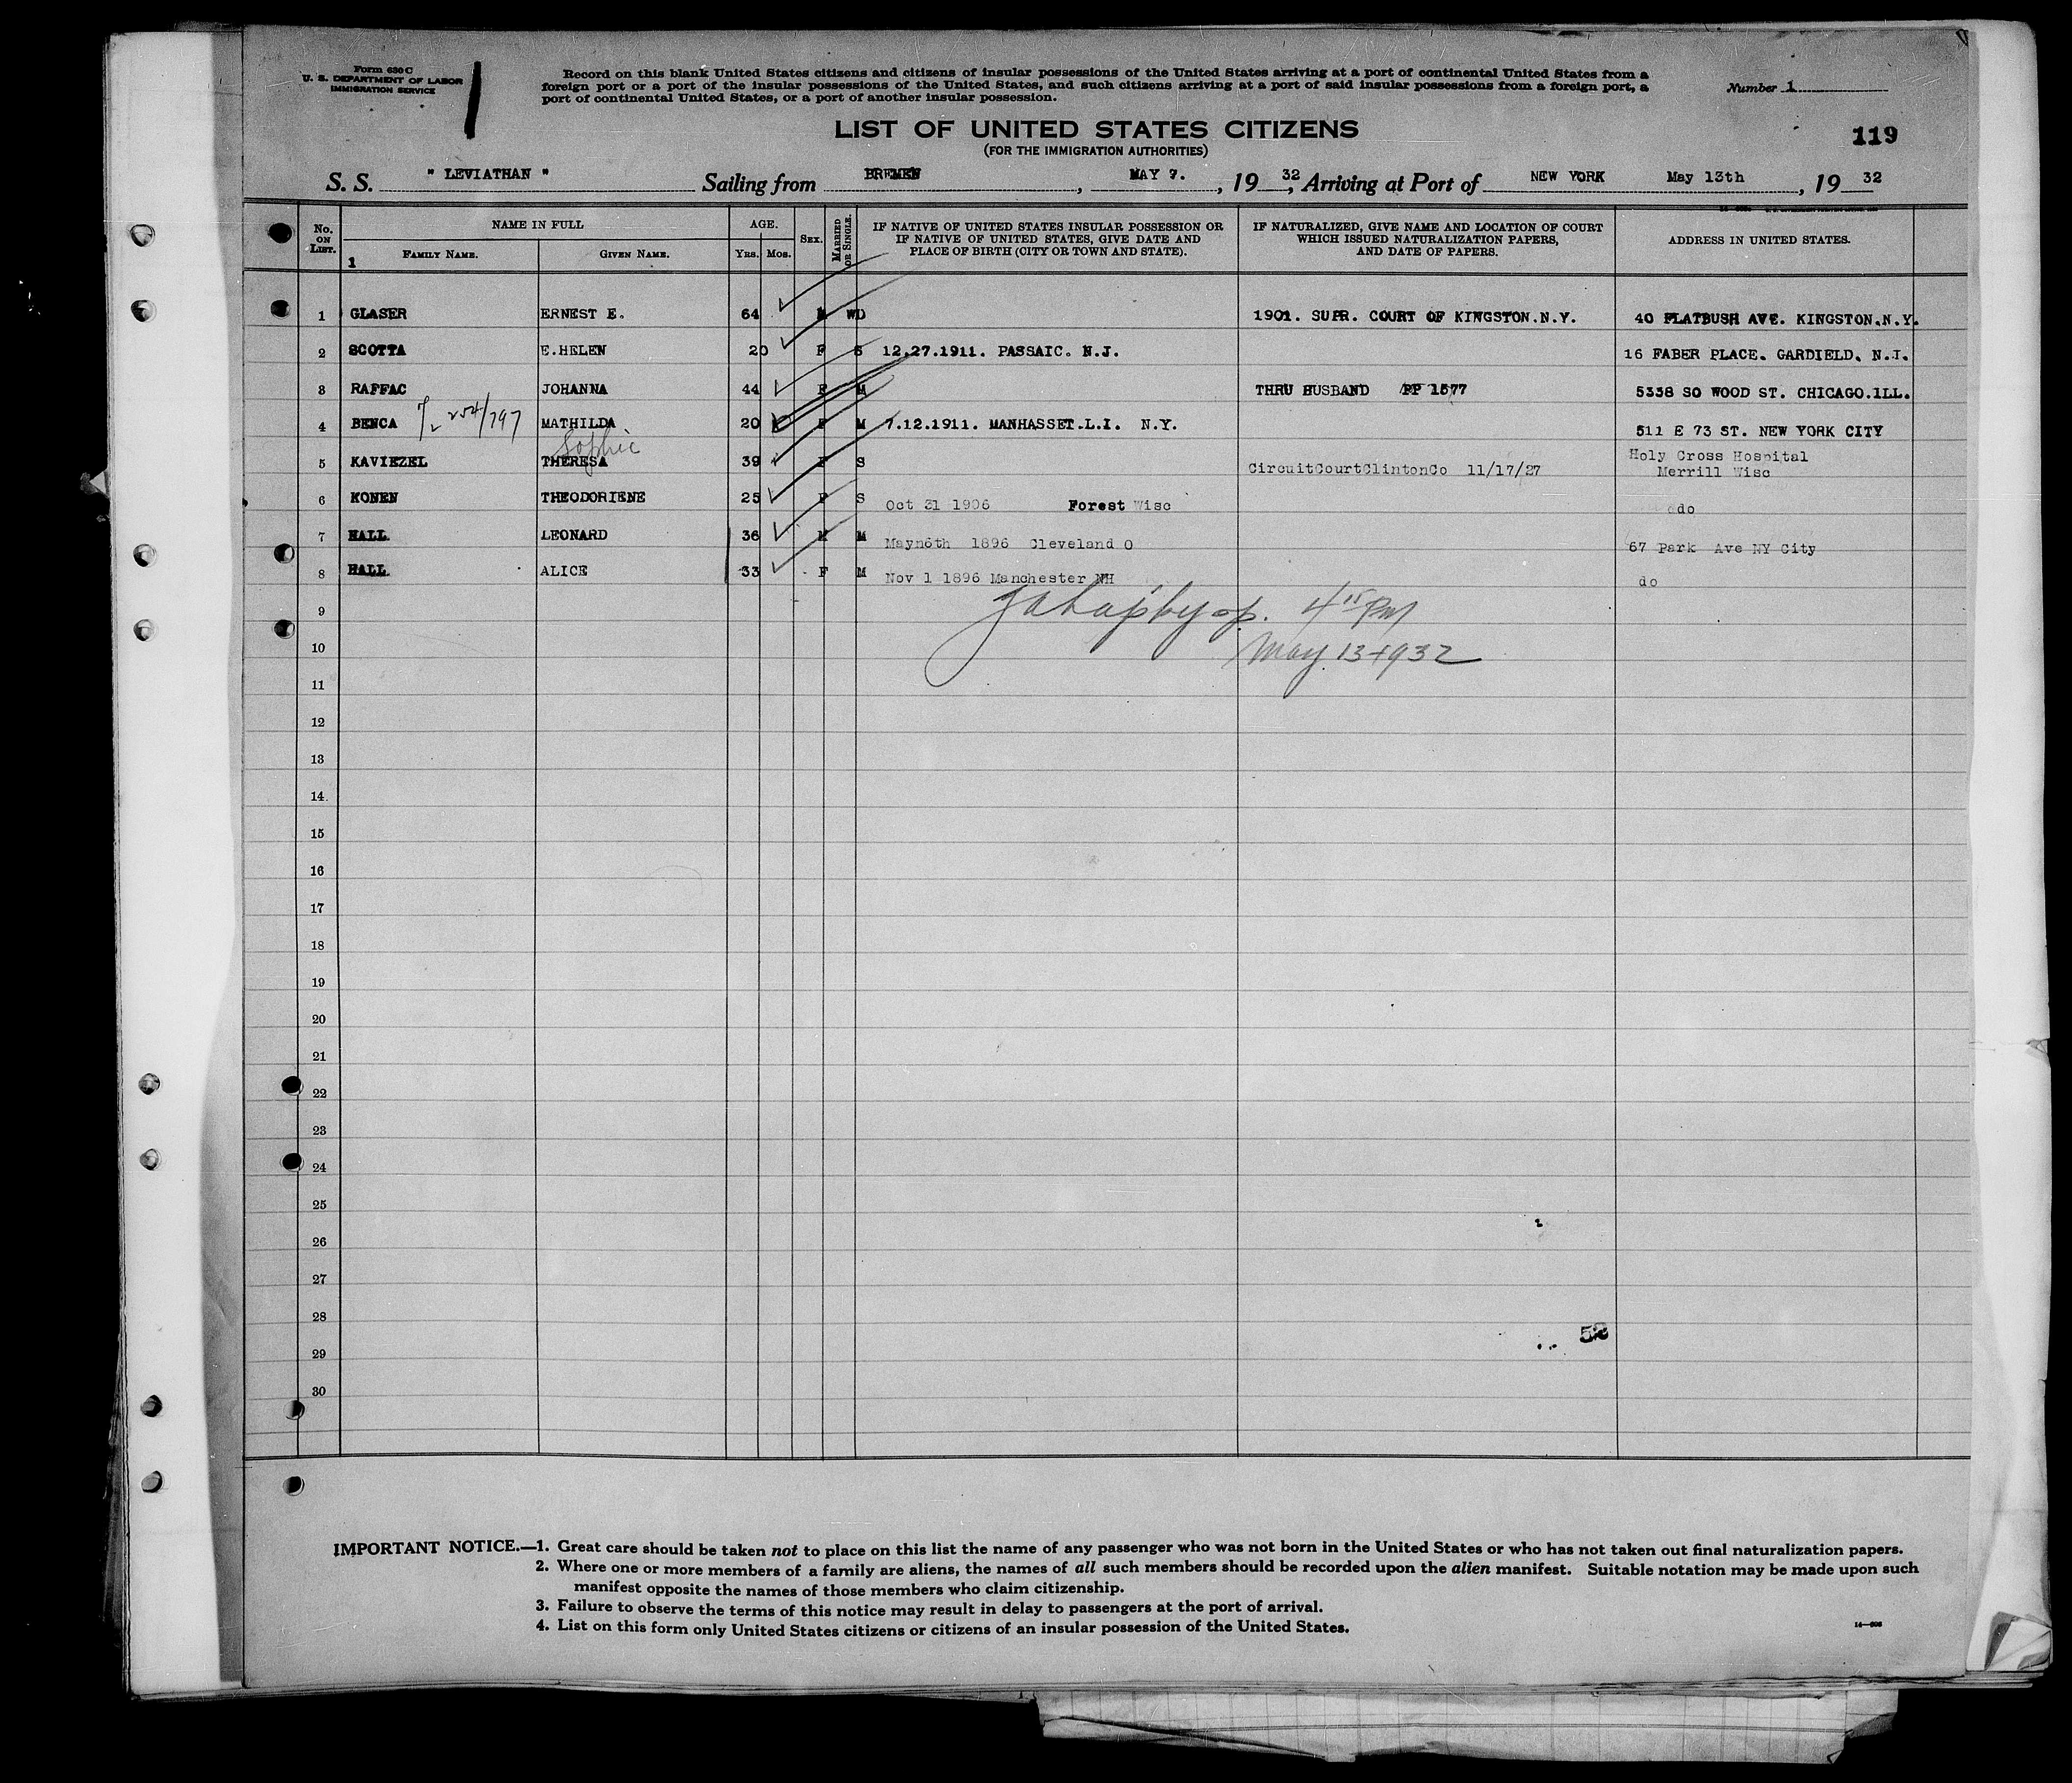 Form 630 C
U. S. DEPARTMENT OF LABOR
IMMIGRATION SERVICE
Record on this blank United States citizens and citizens of insular possessions of the United States arriving at a port of continental United States from a
foreign port or a port of the insular possessions of the United States, and such citizens arriving at a port of said insular possessions from a foreign port, a
port of continental United States, or a port of another insular possession.
Number 1
LIST OF UNITED STATES CITIZENS
(FOR THE IMMIGRATION AUTHORITIES)
119
S. S. " LEVIATHAN " Sailing from BREMEN, MAY 7., 19 32, Arriving at Port of NEW YORK May 13th, 19 32
No. ON LIST. NAME IN FULL AGE. SEX. MARRIED OR SINGLE. IF NATIVE OF UNITED STATES INSULAR POSSESSION OR IF NATIVE OF UNITED STATES, GIVE DATE AND PLACE OF BIRTH (CITY OR TOWN AND STATE). IF NATURALIZED, GIVE NAME AND LOCATION OF COURT WHICH ISSUED NATURALIZATION PAPERS, AND DATE OF PAPERS. ADDRESS IN UNITED STATES.
1 FAMILY NAME. GIVEN NAME. YRS. MOS.
1 GLASER ERNEST E. 64 M WD 1901. SUPR. COURT OF KINGSTON.N.Y. 40 FLATBUSH AVE. KINGSTON.N.Y.
2 SCOTTA E.HELEN 20 F S 12.27.1911. PASSAIC. N.J. 16 FABER PLACE. GARDIELD. N.J.
3 RAFFAC JOHANNA 44 F M THRU HUSBAND PP 1577 5338 SO WOOD ST. CHICAGO.ILL.
4 BENCA 254/797 MATHILDA 20 F M 7.12.1911. MANHASSET.L.I. N.Y. 511 E 73 ST. NEW YORK CITY
Sophie
5 KAVIEZEL THERESA 39 F S CircuitCourtClintonCo 11/17/27 Holy Cross Hospital
Merrill Wisc
6 KONEN THEODORIENE 25 F S Oct 31 1906 Forest Wisc do
7 HALL LEONARD 36 M M May 8th 1896 Cleveland O 67 Park Ave NY City
8 HALL ALICE 33 F M Nov 1 1896 Manchester NH do
9
4 15 PM
10
May 13 1932
11
12
13
14
15
16
17
18
19
20
21
22
23
24
25
26
27
28
29
30
IMPORTANT NOTICE.—1. Great care should be taken not to place on this list the name of any passenger who was not born in the United States or who has not taken out final naturalization papers.
2. Where one or more members of a family are aliens, the names of all such members should be recorded upon the alien manifest. Suitable notation may be made upon such
manifest opposite the names of those members who claim citizenship.
3. Failure to observe the terms of this notice may result in delay to passengers at the port of arrival.
4. List on this form only United States citizens or citizens of an insular possession of the United States.